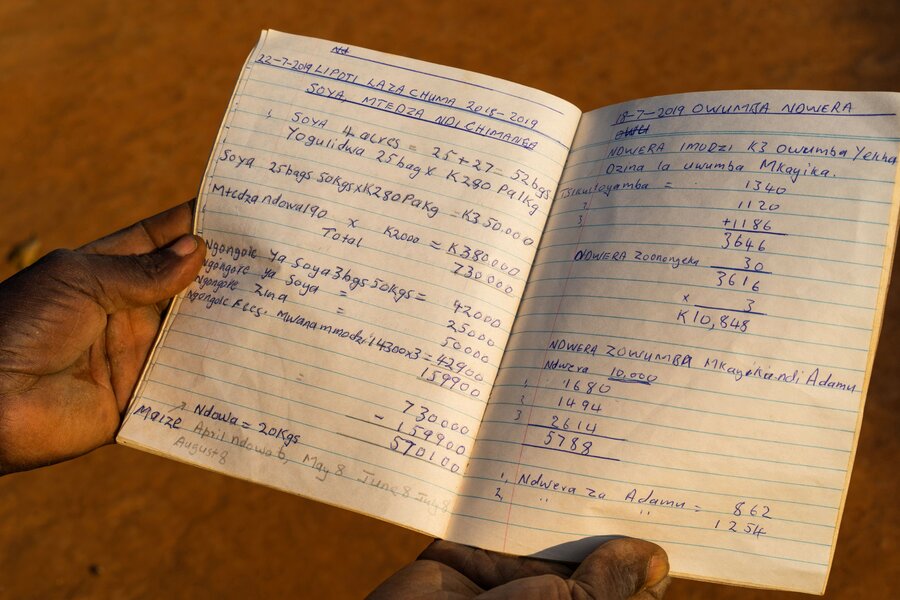 22-7-2019 LIPOTI LAZA CHUMA 2018-2019
SOYA, MTEDZA NDI CHIMANGA
1, SOYA 4 acres = 25+27= 52bgs
Yogulidwa 25bag x K280 Pa1Kg
Soya 25bags 50Kgs x K280 PaKg = K350.000
Mtedza ndowa 190 x K2000 = K380000
Total 730000
Ngongole ya Soya 3bgs 50Kgs = 42000
Ngongole ya Soya = 25000
Ngongole Zina = 50000
Ngongole Fees. Mwanammodzi 14300x3 = 42900
159900
730.000
- 159900
570100
Maize Ndowa = 20Kgs
April ndowa 6, May 8 June 8 July 8
August 8
18-7-2019 OWUMBA NDWERA
NDWERA IMODZI K3 Owumba Yekha
Dzina la uwumba Mkayika.
Tsiku loyamba = 1340
2 1120
3 +1186
3646
NDWERA Zoonongeka 30
3616
x 3
K10,848
NDWERA ZOWUMBA Mkayika ndi Adamu
Ndwera 10,000
1, 1680
2 1494
3 2614
5788
1, Ndwera za Adamu = 862
2, " " 1254